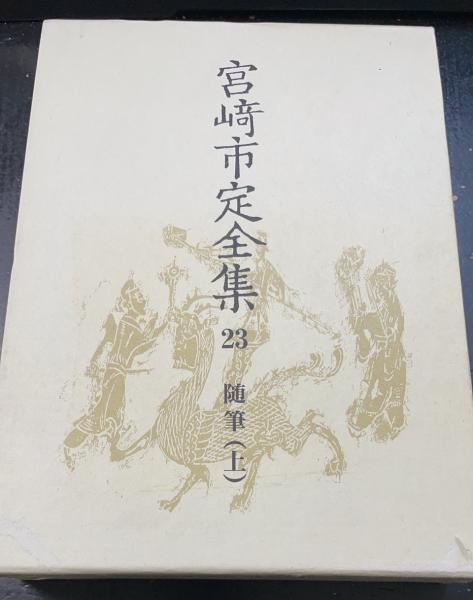 宮﨑市定全集
23
随筆(上)